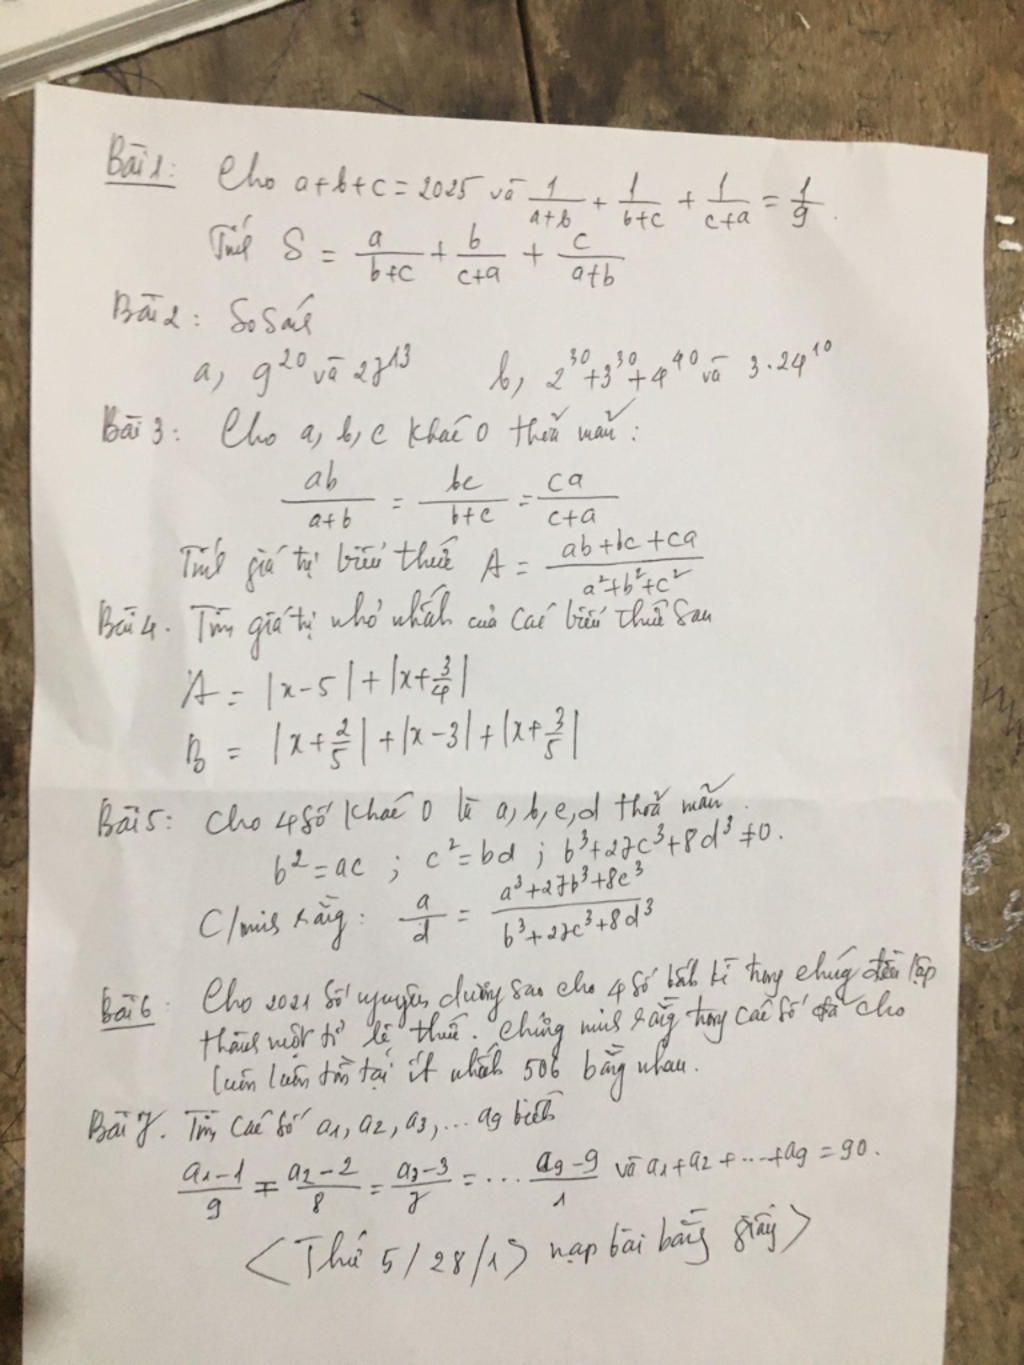 Bài 1: Cho a+b+c = 2025 và 1/(a+b) + 1/(b+c) + 1/(c+a) = 1/9.
Tính S = a/(b+c) + b/(c+a) + c/(a+b)
Bài 2: So sánh
a, 9^20 và 27^13 b, 2^30 + 3^30 + 4^40 và 3.24^10
Bài 3: Cho a, b, c khác 0 thoả mãn:
ab/(a+b) = bc/(b+c) = ca/(c+a)
Tính giá trị biểu thức A = (ab+bc+ca)/(a²+b²+c²)
Bài 4. Tìm giá trị nhỏ nhất của các biểu thức sau
A = |x-5| + |x+3/4|
B = |x+2/5| + |x-3| + |x+3/5|
Bài 5: Cho 4 số khác 0 là a, b, c, d thoả mãn.
b² = ac ; c² = bd ; b³+27c³+8d³ ≠ 0.
C/minh rằng: a/d = (a³+27b³+8c³)/(b³+27c³+8d³)
Bài 6: Cho 2021 số nguyên dương sao cho 4 số bất kì trong chúng đều lập
thành một tỉ lệ thức. Chứng minh rằng trong các số đã cho
luôn luôn tồn tại ít nhất 506 bằng nhau.
Bài 7. Tìm các số a1, a2, a3, ... a9 biết
(a1-1)/9 = (a2-2)/8 = (a3-3)/7 = ... (a9-9)/1 và a1+a2+...+a9 = 90.
<Thứ 5/28/1> nạp bài bằng giấy>